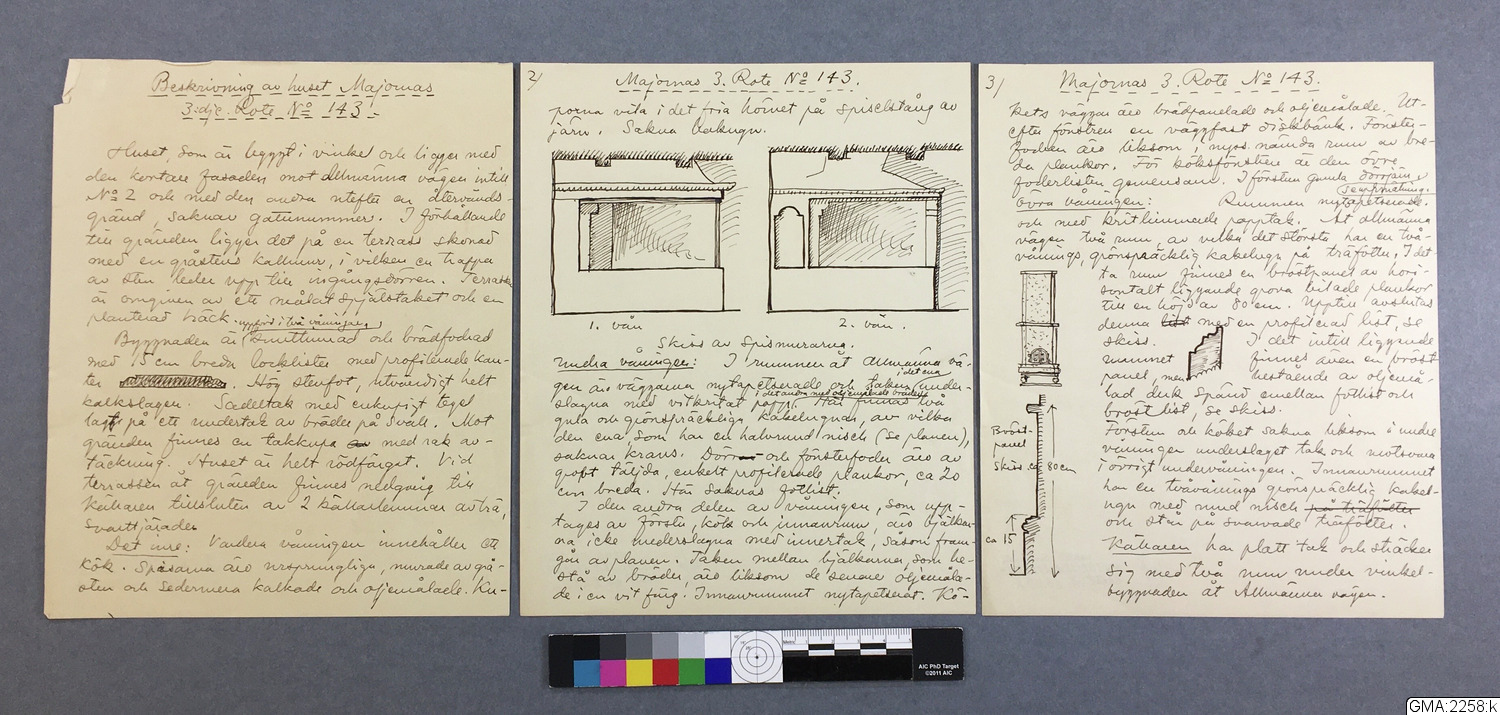 Beskrivning av huset Majornas
3:dje. Rote No 143.
Huset, som är byggt i vinkel och ligger med
den kortare fasaden mot Allmänna vägen intill
No 2 och med den andra utefter en återvänds-
gränd, saknar gatunummer. I förhållande
till gränden ligger det på en terrass skonad
med en gråstens kallmur, i vilken en trappa
av sten leder upp till ingångsdörren. Terrassen
är omgiven av ett målat spjälstaket och en
planterad häck.
uppförd i två våningar,
Byggnaden är knuttimrad och brädfodrad
med 15 cm breda locklister med profilerade kan-
ter. Hög stenfot, utvändigt helt
kalkslagen. Sadeltak med enkupigt tegel
lagt på ett undertak av bräder på Svall. Mot
gränden finnes en takkupa med rak av-
täckning. Huset är helt rödfärgat. Vid
terrassen åt gränden finnes nedgång till
Källaren tillsluten av 2 källarlemmar av trä,
svarttjärade.
Det inre: Vardera våningen innehåller ett
kök. Spisarna äro ursprungliga, murade av grå-
sten och sedermera kalkade och oljemålade. Ku-
2/
Majornas 3. Rote No 143.
porna vila i det fria hörnet på spiselstång av
järn. Sakna bakugn.
1. vån
2. vån.
Skiss av Spismurarna.
Undra våningen: I rummen åt Allmänna vä-
gen äro väggarna nytapetserade och taken i det ena under-
slagna med vitkritat papp, i det andra med oljemålade bräder. Här finnas två
gula och grönspräckliga kakelugnar, av vilka
den ena, som har en halvrund nisch (se planen),
saknar krans. Dörr och fönsterfoder äro av
grovt täljda, enkelt profilerade plankor, ca 20
cm breda. Här saknas fotlist.
I den andra delen av våningen, som upp-
tages av förstu, kök och innanrum, äro bjälkar-
na icke underslagna med innertak, såsom fram-
går av planen. Taken mellan bjälkarna, som be-
stå av bräder äro liksom de senare oljemåla-
de i en vit färg. Innanrummet nytapetserat. Kö-
3/
Majornas 3. Rote No 143.
kets väggar äro brädpanelade och oljemålade. Ut-
efter fönstren en väggfast diskbänk. Fönster-
fodren äro liksom i nyss nämda rum av bre-
da plankor. För köksfönstren är den övre
foderlisten gemensam. I förstun gamla dörrjärn,
se uppmätning.
Övra våningen: Rummen nytapetserade
och med kritlimmade papptak. Åt Allmänna
vägen två rum, av vilka det största har en två-
vånings, grönspräcklig kakelugn på träfötter. I det-
ta rum finnes en bröstpanel av hori-
sontalt liggande grova bilade plankor
till en höjd av 80 cm. Upptill avslutas
denna list med en profilerad list, se
skiss. I det intill liggande
rummet finnes även en bröst
panel, men bestående av oljemå-
lad duk spänd emellan fotlist och
bröstlist, se skiss.
Bröst-
panel
Skiss ca 80 cm
ca 15
Förstun och köket sakna liksom i undre
våningen underslaget tak och motsvara
i övrigt undervåningen. Innanrummet
har en tvåvånings grönspräcklig kakel-
ugn med rund nisch på träfötter
och står på svarvade träfötter.
Källaren har platt tak och sträcker
sig med två rum under vinkel-
byggnaden åt Allmänna vägen.
AIC PhD Target
©2011 AIC
GMA:2258:k